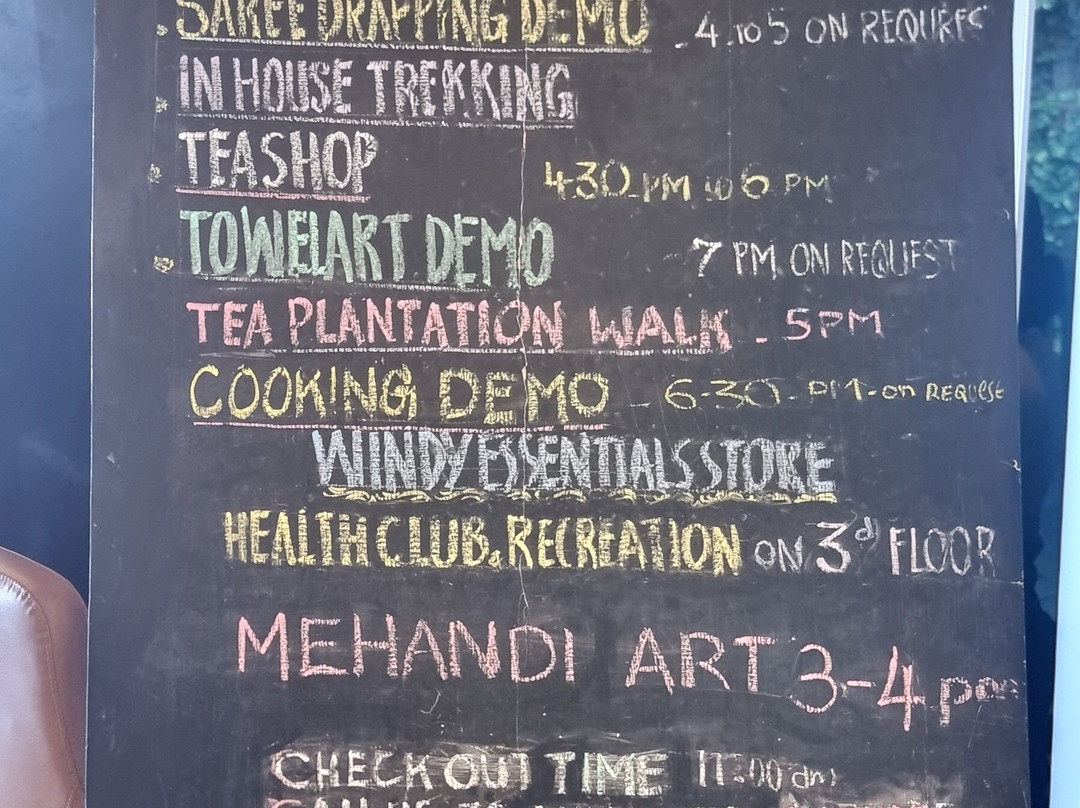 SAREE DRAPPING DEMO - 4 to 5 ON REQUEST
IN HOUSE TREKKING
TEA SHOP 430 PM to 6 PM
TOWELART DEMO - 7 PM ON REQUEST
TEA PLANTATION WALK - 5PM
COOKING DEMO - 6-30- PM-on REQUESt
WINDY ESSENTIALS STORE
HEALTH CLUB & RECREATION ON 3d FLOOR
MEHANDI ART 3-4 pm
CHECK OUT TIME 11:00 am